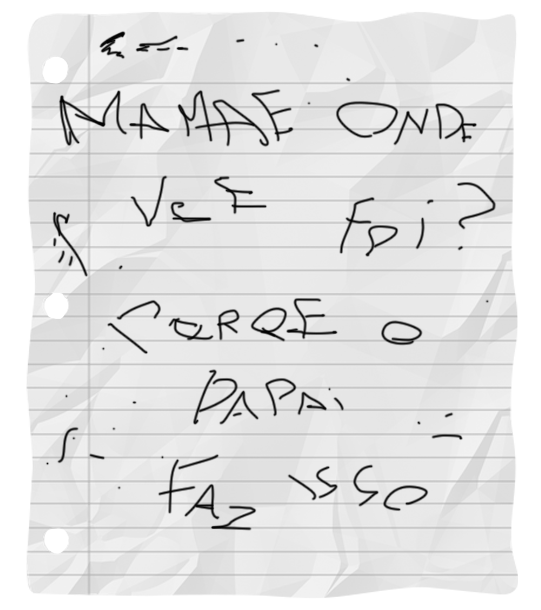 MAMAE ONDE
VCE FOI?
PORQE O
PAPAi
FAZ ISSO